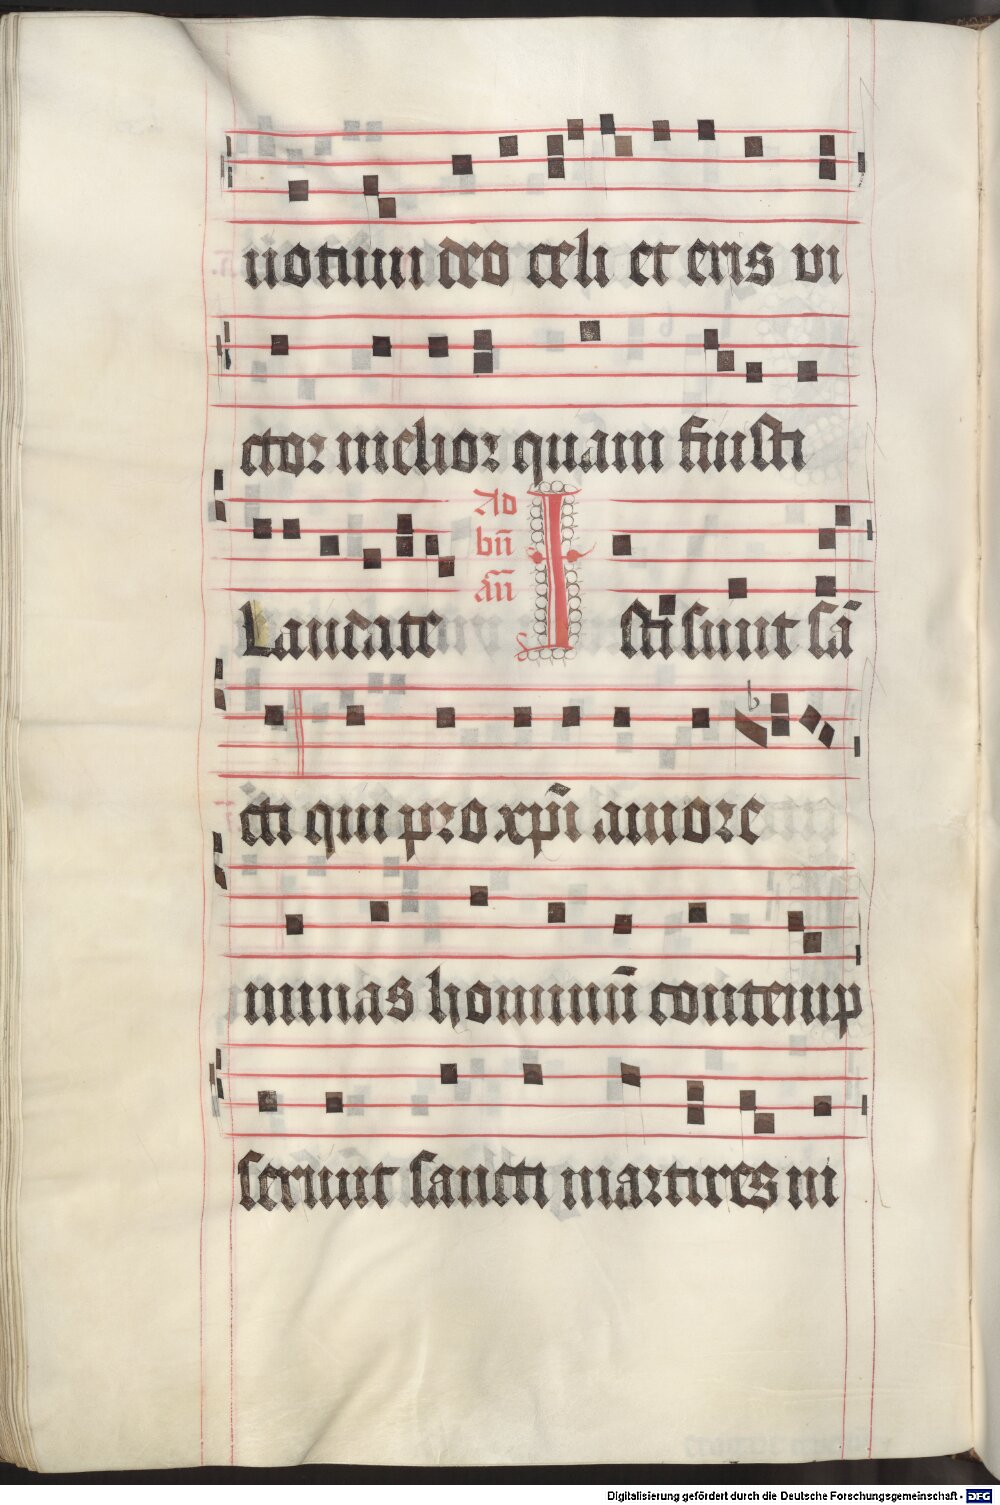 uotum deo celi et eris vi
ctor melior quam fuisti
Laudate Ad bn̄ an̄ Isti sunt sā
cti qui pro xp̄i amore
minas hominū contemp
serunt sancti martires in
Digitalisierung gefördert durch die Deutsche Forschungsgemeinschaft - DFG